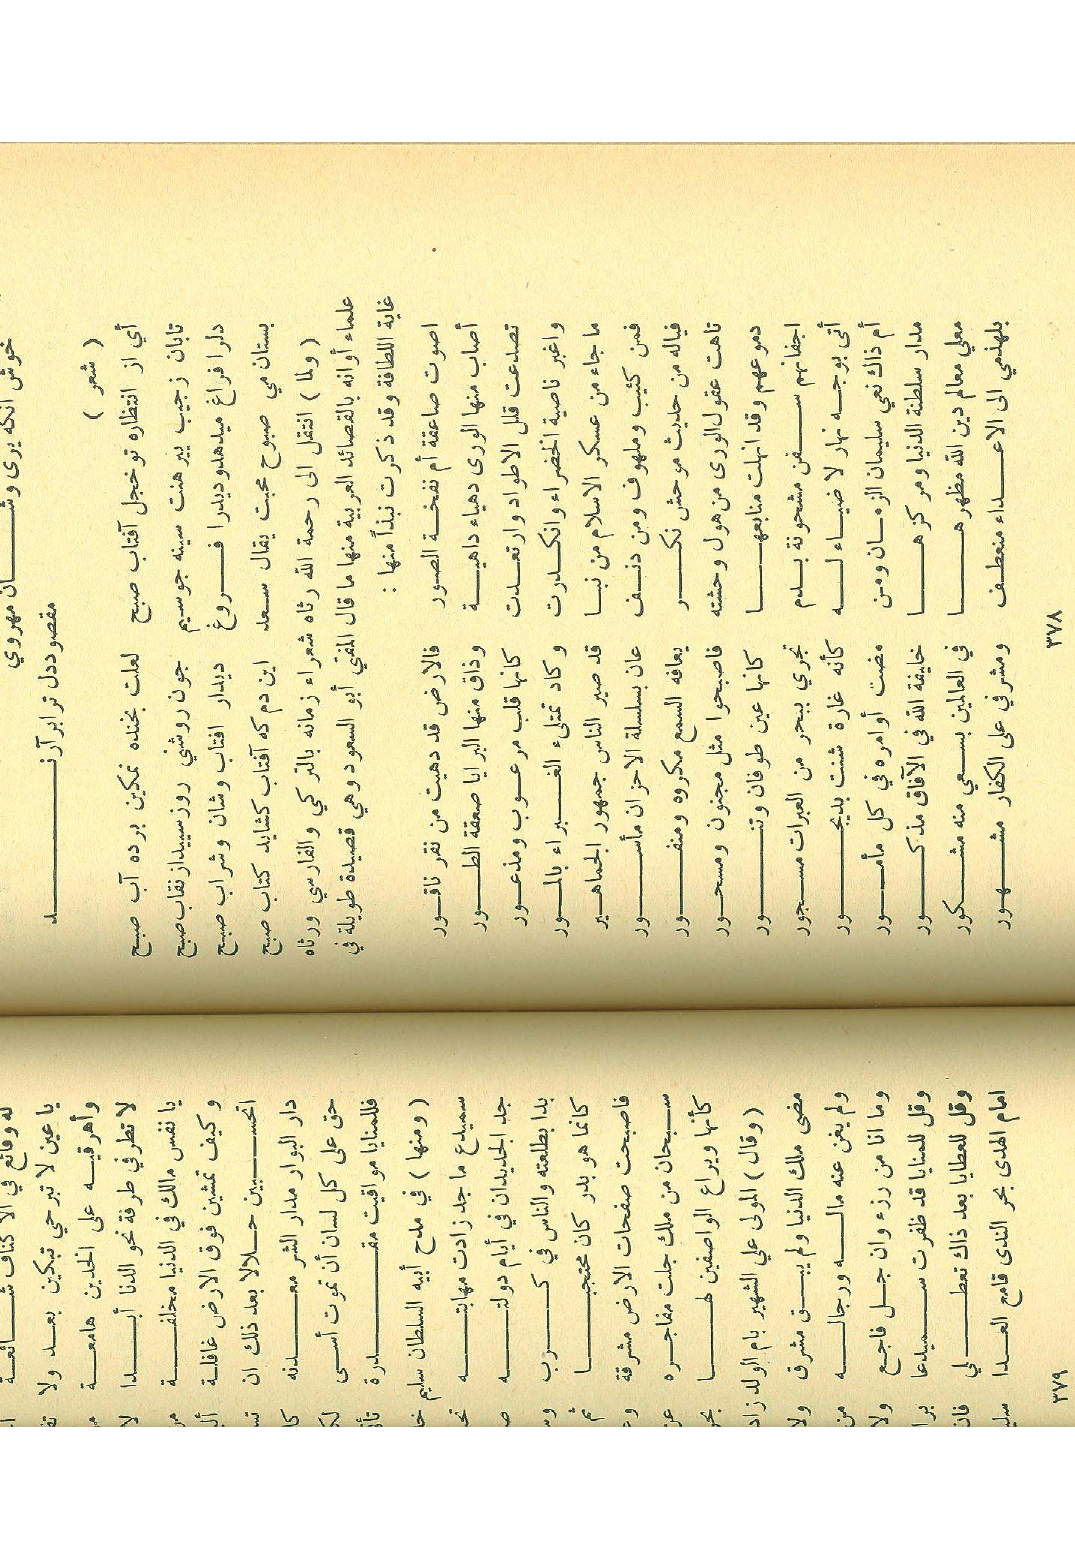 خوش آنکه بری وشـان مهروي
مقصود دل تر ابر آرنـد
( شعر )
أي از انتظاره تو خجل آفتاب صبح لعلت بخنده نمكين برده آب صبح
تابان زجيب پيرهنت سينه جو سيم جون روشني روز سپيد از نقاب صبح
دلرا فراغ ميدهد و ديدرا فـروغ ديدار افتاب وشان وشراب صبح
بستان مي صبوح محبت يقال سعد اين دم كه آفتاب كشايد كتاب صبح
( ولما ) انتقل الى رحمة الله رثاه شعراء زمانه بالتركي والفارسي ورثاه
علماء أوانه بالقصائد العربية منها ما قال المفتي أبو السعود وهي قصيدة طويلة في
غاية اللطافة وقد ذكرت نبذاً منها :
اصوت صاعقة أم نفخـة الصور فالارض قد دهيت من نقر ناقـور
أصاب منها الورى دهياء داهيـة وذاق منها البرايا صعقة الطـور
تصدعت قلل الاطواد وارتعـدت كأنها قلب مرعـوب ومذعـور
واغبر ناصية الخضراء وانكـدرت وكاد تمتلىء الغـبراء بالمـور
ما جاء من عسكر الاسلام من نبـا قد صير الناس جمهور الجماهير
فمن كئيب وملهوف ومن دنـف عان بسلسلة الاحزان مأسـور
فياله من حديث موحش نكـر يعافه السمع مكروه ومنفـور
تاهت عقول الورى من هول وحشته فاصبحوا مثل مجنون ومسحـور
دموعهم وقد انهلت منابعهـا كأنها عين طوفان وتنـور
اجفانهم سـفن مشحونة بـدم تجري ببحر من العبرات مسجور
أتى بوجـه نهار لا ضيـاء لـه كأنه غارة شنت بديجـور
أم ذاك نعي سليمان الزمـان ومن مضت أوامره في كل مأمـور
مدار سلطنة الدنيا ومركزهـا خليفة الله في الآفاق مذكـور
معلي معالم دين الله مظهرهـا في العالمين بسعي منه مشـكور
بلهذمي الى الاعـداء منعطـف ومشرفي على الكفار مشـهور
٣٧٨
له وقائع في الاكناف شـائعة
يا عين لا تبرحي تبكين بعـد ولا
وأهرقيـه على الخدين هامعـة
لا تطرفي طرفة نحو الدنا أبـدا
يا نفس مالك في الدنيا مخلفـة
وكيف تمشين فوق الارض غافلـة
اتحسـبين حـلالا بعد ذلك ان
دار البوار مدار الشر معـدنه
حق على كل لسان أن تموت أسى
فللمنايا مواقيت مقـدرة
( ومنها ) في مدح أبيه السلطان سليم
سميدع ما جد زادت مهابتـه
جد الجديدان في أيام دولتـه
بدا بطلعته والناس في كـرب
كأنما هو بدر كان محتجبـا
فاصبحت صفحات الارض مشرقة
سـبحان من ملك جلت مفاخـره
كأنها ويراع الواصفين لهـا
( وقال ) المولى علي الشهير بام الولد زاد
مضى ملك الدنيا ولم يبـق مشرق
ولم يغن عنه مالـه ورجالـه
وما انا من رزء وان جـل فاجـع
وقل للمنايا قد ظفرت سـميدعا
وقل للعطايا بعد ذاك تعطـلي
امام الهدى بحر الندى قامع العـدا
٣٧٩